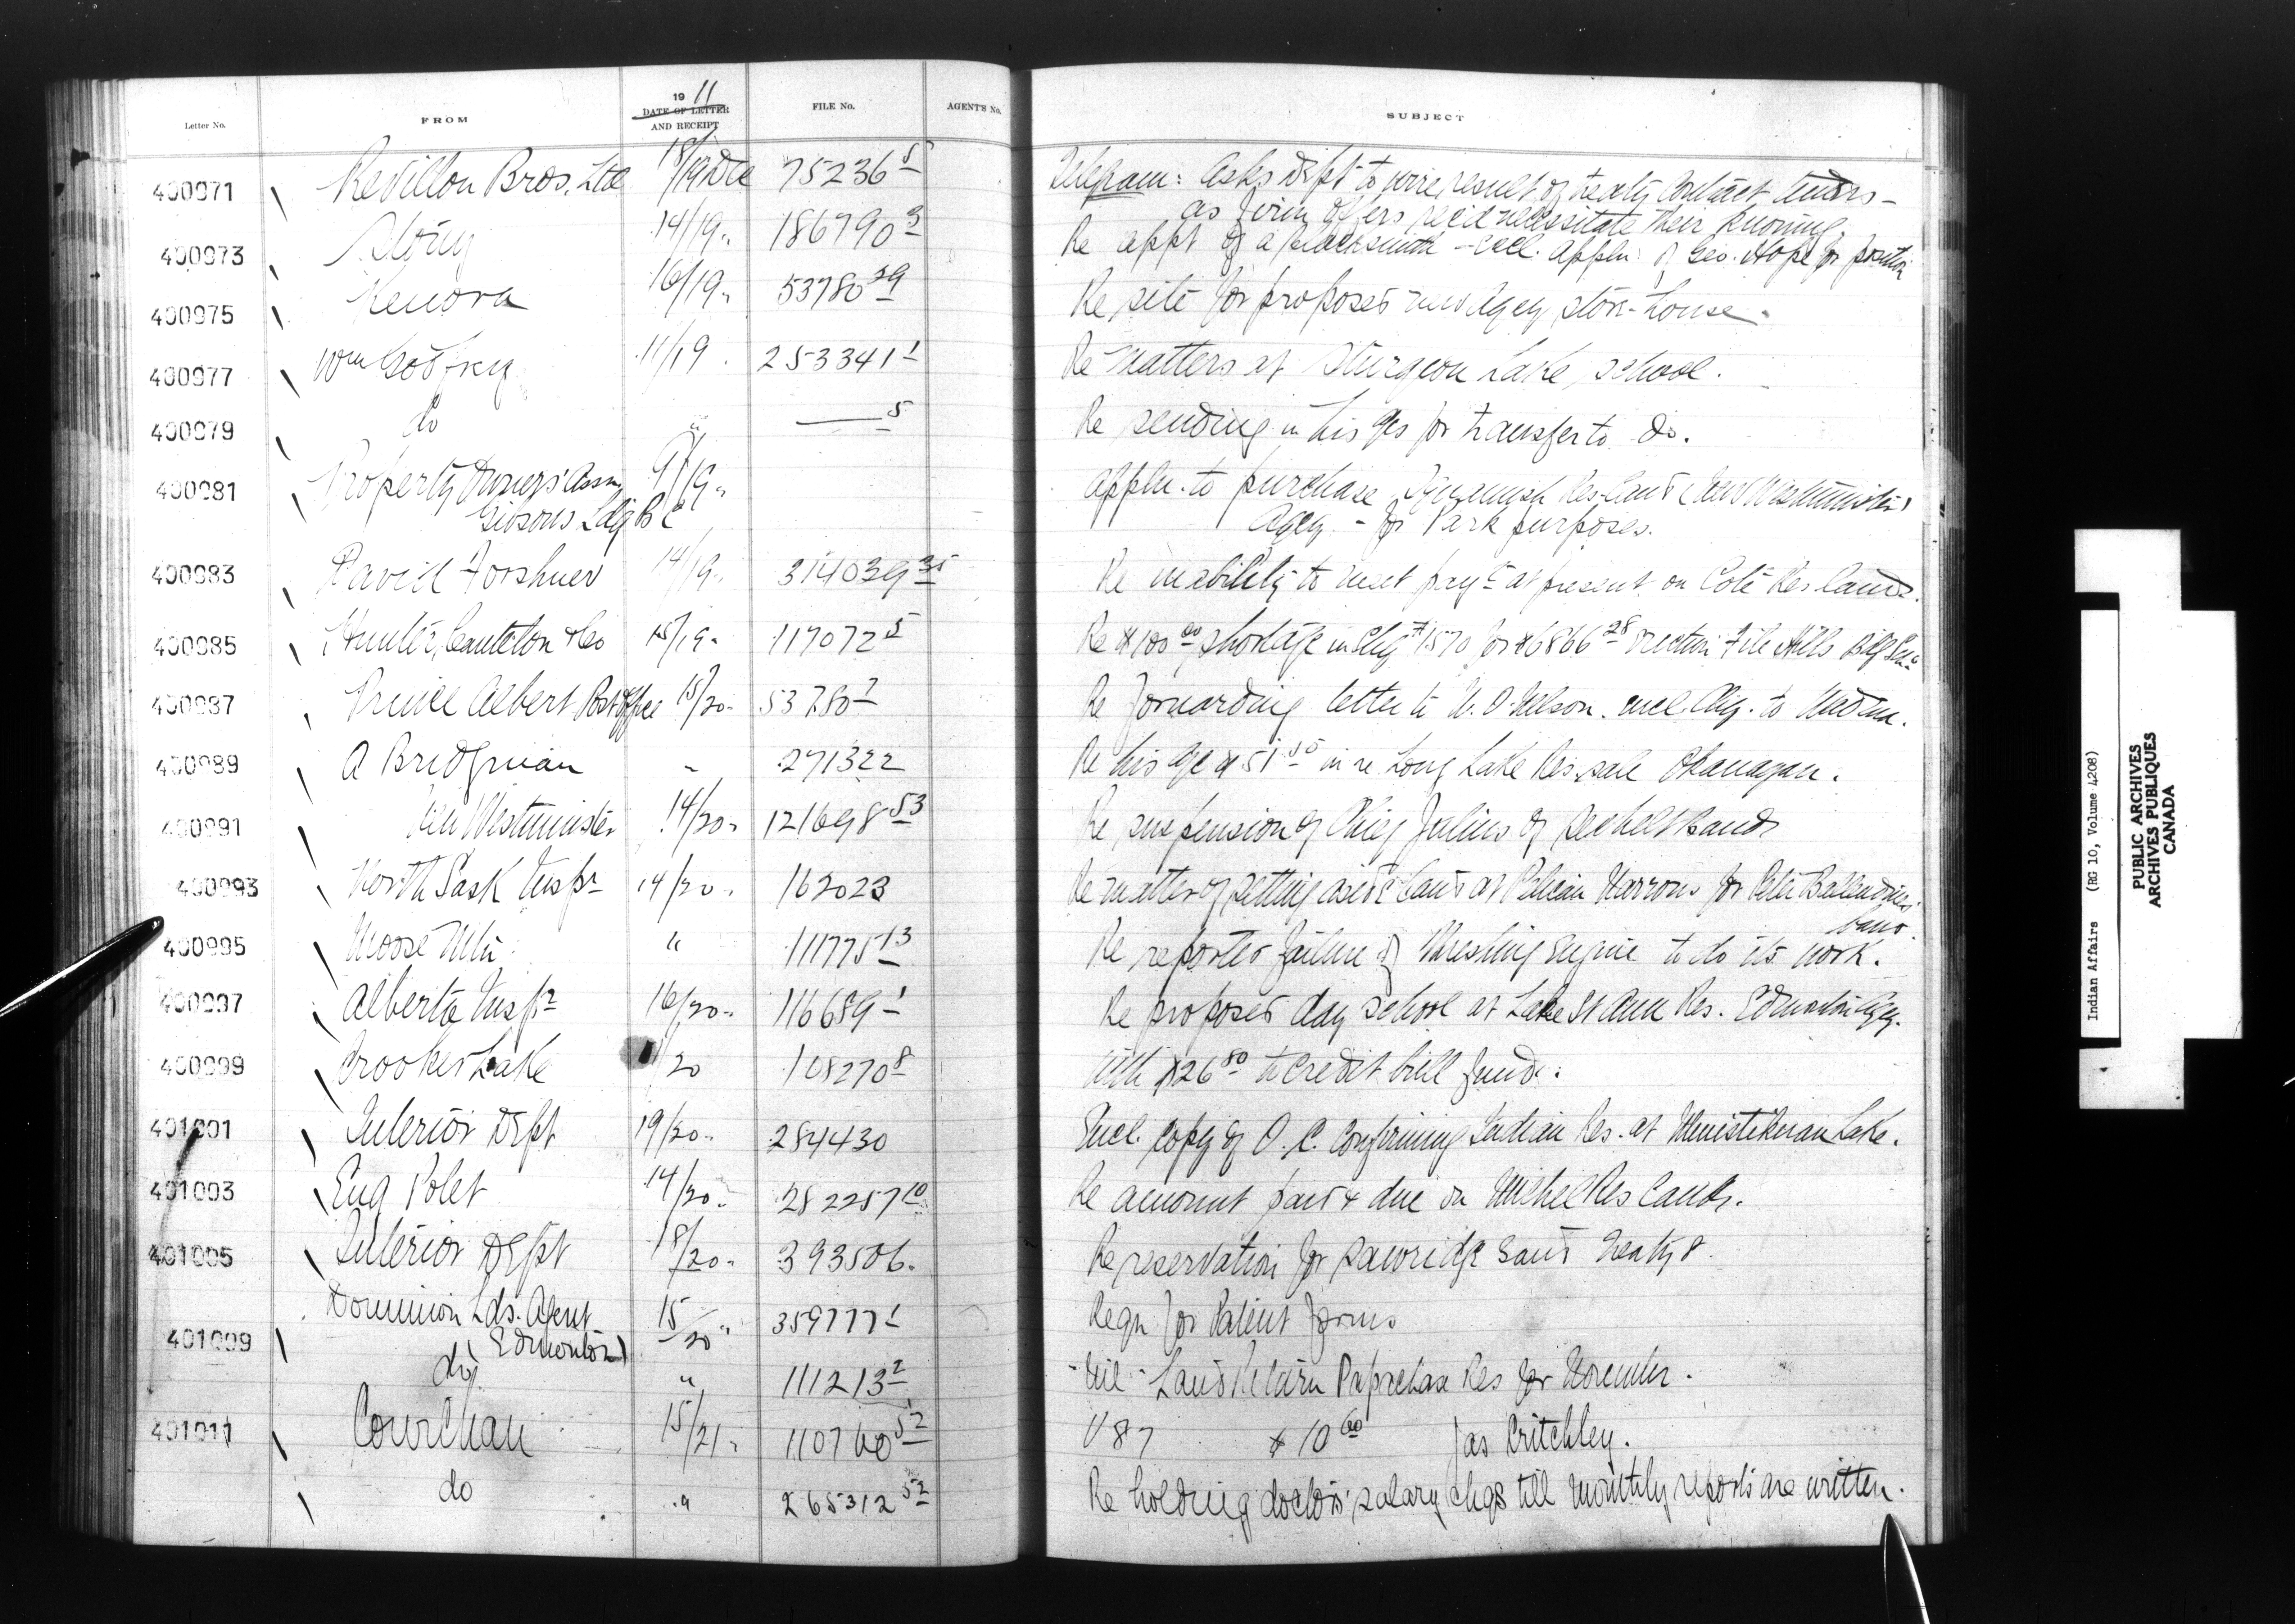 19 11
Letter No. FROM DATE OF LETTER AND RECEIPT FILE No. AGENT'S No. SUBJECT
400971 Revillon Bros. Ltd 18/19 Dec 75236 5 Telegram: Asks Dept to wire result of treaty contract tenders -
as firm offers rec'd necessitate their knowing.
400973 Stony 14/19 " 186790 3 Re appt of a blacksmith - encl. appln of Geo. Hope for position
400975 Kenora 16/19 " 53780 29 Re site for proposed new Agcy store-house.
400977 Wm Godfrey 11/19 253341 1 Re matters at Sturgeon Lake school.
400979 do " 5 Re sending in his for transfer to do.
400981 Property Owners' Assn 9/19 " Appln. to purchase Res. land (New Westminster
Gibsons Ldg B C Agcy - for Park purposes.
400983 David Forshner 14/19 " 314039 35 Re inability to meet payt at present on Coté Res lands.
400985 Hunter, Canteton & Co 15/19 " 117072 5 Re $100 00 shortage in Chq # 1570 for $6866 28 erection File Hills Bdg Sch.
400987 Prince Albert Post Office 15/20 " 53780 7 Re forwarding letter to N. O. Nelson. encl. Chq. to
400989 A Bridgman " 271322 Re his in re Long Lake Res. sale Okanagan.
400991 New Westminster 14/20 " 121698 53 Re suspension of Chief Julius of Sechelt Band
400993 North Sask Inspr 14/20 " 162023 Re matter of setting aside land at Pelican Narrows for Peter Ballendine's
band.
400995 Moose Mtn. " 111775 13 Re reported failure of threshing engine to do its work.
400997 Alberta Inspr 16/20 " 116689 1 Re proposed day school at Lake St Ann Res. Edmonton Agcy.
400999 Crooked Lake /20 108270 8 With $26 80 to credit bull fund.
401001 Interior Dept 19/20 " 284430 Encl. copy of O. C. confirming Indian Res. at Ministikwan Lake.
401003 Eug Polet 14/20 " 282257 10 Re amount paid & due on Michel Res Lands.
401005 Interior Dept 18/20 " 393506. Re reservation for Sawridge Band Treaty 8
Dominion Lds. Agent 15/20 " 359777 1 Reqn for Patent forms
401009 Edmonton)
do " 111213 2 - Nil - Land Return Papachase Res for November.
401011 Cowichan 15/21 " 110760 52 V 87 $10 60 Jas Critchley.
do " 265312 52 Re holding doctors' salary chqs till monthly reports are written.
Indian Affairs (RG 10, Volume 4208)
PUBLIC ARCHIVES
ARCHIVES PUBLIQUES
CANADA